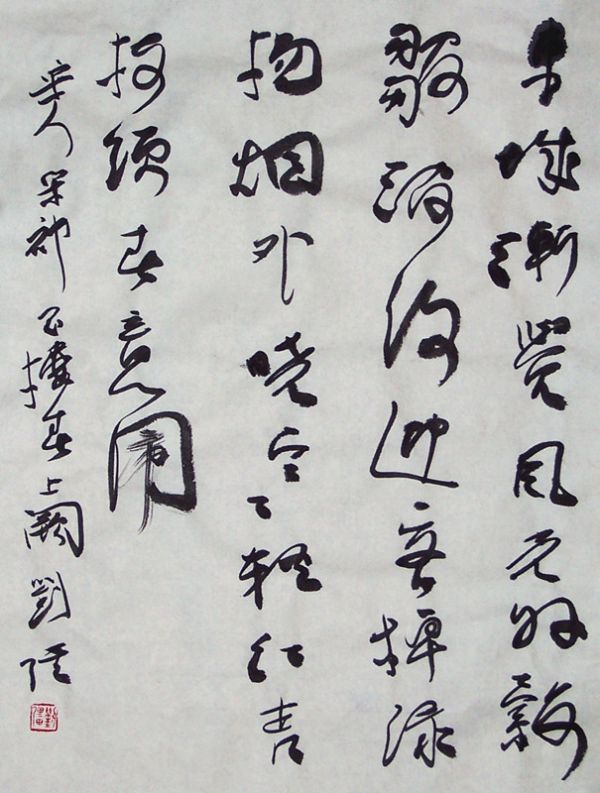 东城渐觉风光好縠
皱波纹迎客棹绿
杨烟外晓寒轻红杏
枝头春意闹
宋人宋祁玉楼春上阙刘